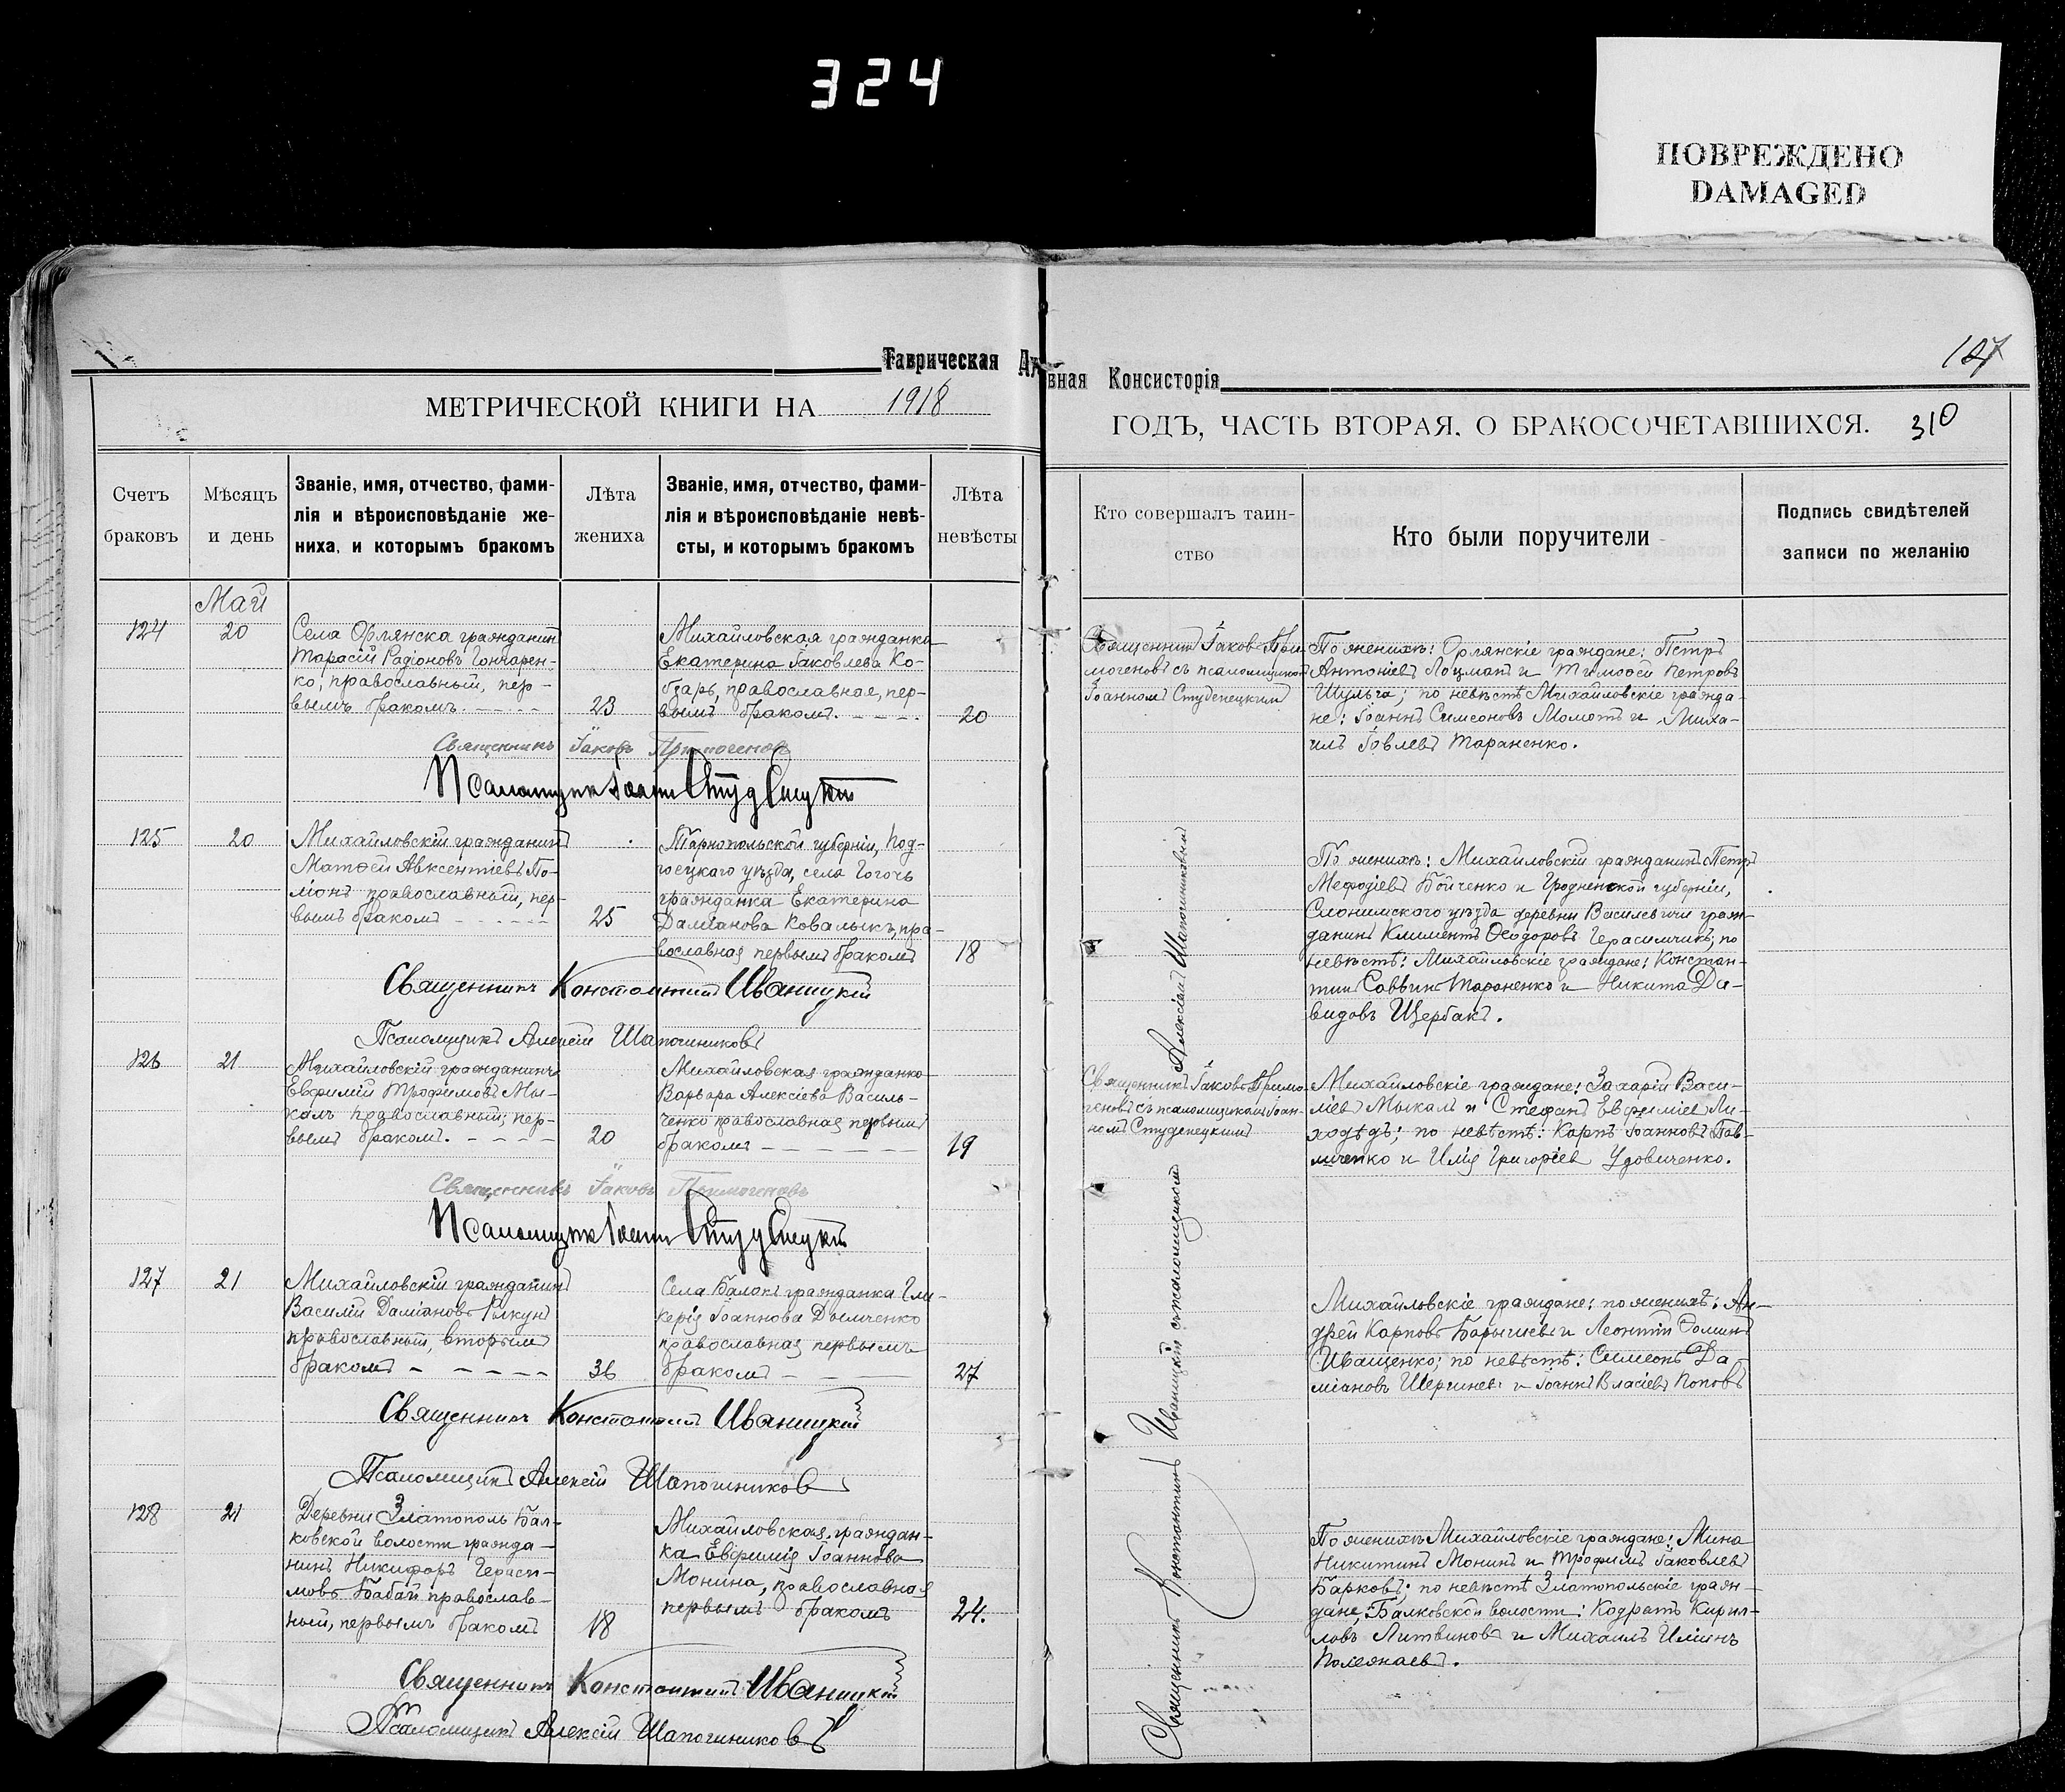 324
ПОВРЕЖДЕНО
DAMAGED
Таврическая
вная Консисторія
127
МЕТРИЧЕСКОЙ КНИГИ НА 1918
ГОДЪ, ЧАСТЬ ВТОРАЯ, О БРАКОСОЧЕТАВШИХСЯ.
310
Счетъ
браковъ
Мѣсяцъ
и день
Званіе, имя, отчество, фами-
лія и вѣроисповѣданіе же-
ниха, и которымъ бракомъ
Лѣта
жениха
Званіе, имя, отчество, фами-
лія и вѣроисповѣданіе невѣ-
сты, и которымъ бракомъ
Лѣта
невѣсты
Кто совершалъ таин-
ство
Кто были поручители
Подпись свидѣтелей
записи по желанію
Май
124
20
Села Орлянска гражданинъ
Тарасій Радіоновъ Гончарен-
ко, православный, пер-
вымъ бракомъ.
23
Михайловская гражданка
Екатерина Іаковлева Ко-
бзарь, православная, пер-
вымъ бракомъ.
20
Священникъ Іаковъ При-
могеновъ съ псаломщикомъ
Іоанномъ Студенецкимъ
По женихѣ: Орлянскіе граждане: Петръ
Антоніевъ Лоцманъ и Тимоѳей Петровъ
Шульга; по невѣстѣ Михайловскіе гражда-
не: Іоаннъ Симеоновъ Момотъ и Миха-
илъ Іовлевъ Тараненко.
Священникъ Іаковъ Примогеновъ
Псаломщикъ Іоаннъ Студенецкій
125
20
Михайловскій гражданинъ
Матѳей Авксентіевъ По-
ліонъ православный, пер-
вымъ бракомъ
25
Тарнопольской губерніи, Под-
гоецкаго уѣзда, села Гогочь
гражданка Екатерина
Даміанова Ковалыкъ, пра-
вославная первымъ бракомъ
18
По женихѣ: Михайловскій гражданинъ Петръ
Меѳодіевъ Бойченко и Гродненской губерніи,
Слонимскаго уѣзда деревни Василевичи граж-
данинъ Климентъ Ѳеодоровъ Герасимчикъ; по
невѣстѣ: Михайловскіе граждане: Констан-
тинъ Саввинъ Тараненко и Никита Да-
видовъ Щербакъ.
Священникъ Константинъ Иваницкій
Псаломщикъ Алексій Шапошниковъ
126
21
Михайловскій гражданинъ
Евфимій Трофимовъ Мы-
калъ православный, пер-
вымъ бракомъ.
20
Михайловская гражданка
Варвара Алексіева Василь-
ченко православная первымъ
бракомъ
19
Священникъ Іаковъ Примо-
геновъ съ псаломщикомъ Іоан-
номъ Студенецкимъ
Михайловскіе граждане: Захарій Васи-
ліевъ Мыкалъ и Стефанъ Евфиміевъ Ли-
ходѣдъ; по невѣстѣ: Карпъ Іоанновъ Пав-
личенко и Илія Григоріев Удовиченко.
Священникъ Іаковъ Примогеновъ
Псаломщикъ Іоаннъ Студенецкій
127
21
Михайловскій гражданинъ
Василій Даміановъ Рикунъ
православный, вторымъ
бракомъ
36
Села Балокъ гражданка Гли-
керія Іоаннова Дымченко
православная первымъ
бракомъ
27
Михайловскіе граждане: по женихѣ: Ан-
дрей Карповъ Барышевъ и Леонтій Ѳоминъ
Иващенко; по невѣстѣ: Симеонъ Да-
міановъ Шершневъ и Іоаннъ Власіевъ Поповъ
Священникъ Константинъ Иваницкій
Псаломщикъ Алексій Шапошниковъ
128
21
Деревни Златополь Бал-
ковской волости гражда-
нинъ Никифоръ Гераси-
мовъ Бабай православ-
ный, первымъ бракомъ
18
Михайловская граждан-
ка Евфимія Іоаннова
Монина, православная
первымъ бракомъ
24.
По женихѣ Михайловскіе граждане: Мина
Никитинъ Монинъ и Трофимъ Іаковлевъ
Барковъ; по невѣстѣ Златопольскіе граж-
дане, Балковской волости: Кодратъ Кирил-
ловъ Литвиновъ и Михаилъ Иліинъ
Священникъ Константинъ Иваницкій съ псаломщикомъ Алексіемъ Шапошниковымъ
Священникъ Константинъ Иваницкій
Псаломщикъ Алексій Шапошниковъ